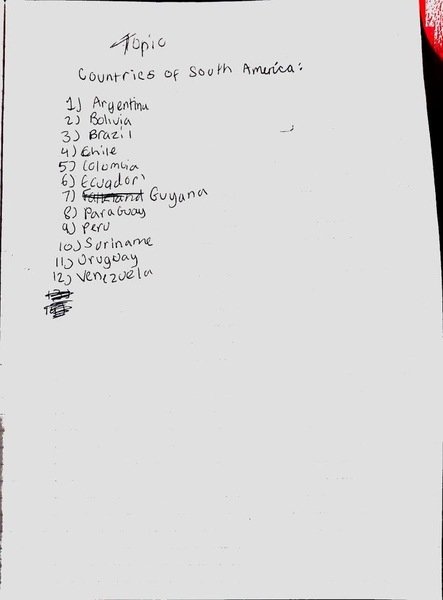 Topic
Countries of South America:
1) Argentina
2) Bolivia
3) Brazil
4) Chile
5) Colombia
6) Ecuador
7) Falkland Guyana
8) Paraguay
9) Peru
10) Suriname
11) Uruguay
12) Venezuela